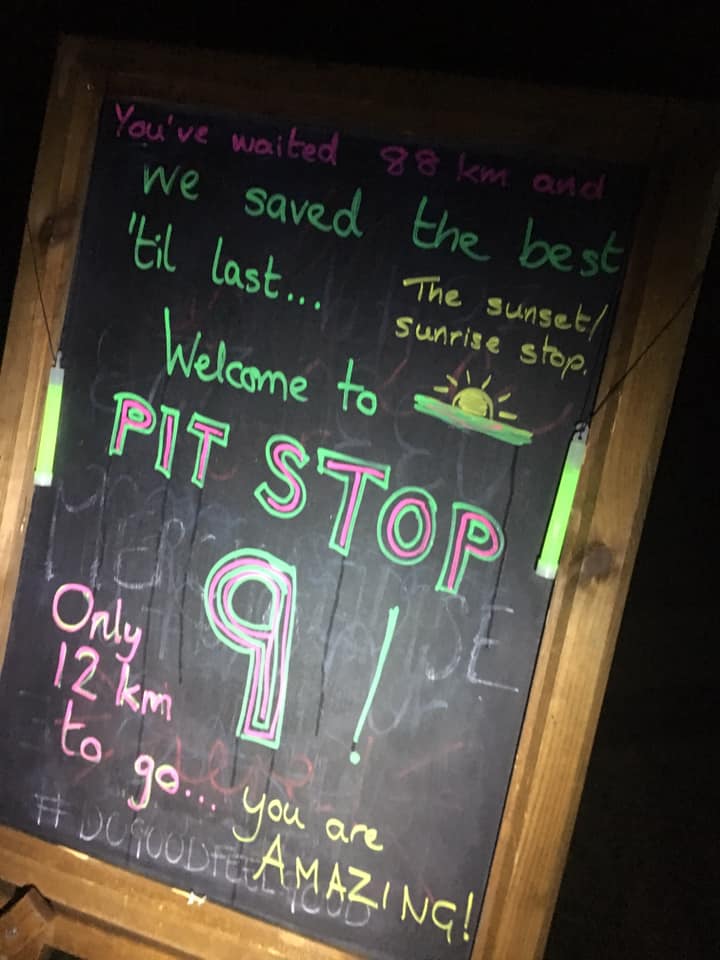 You've waited 88 km and
we saved the best
'til last...
The sunset/
sunrise stop.
Welcome to
PIT STOP
9!
Only
12 km
to go...
you are
AMAZING!
#DOGOODFEELGOOD